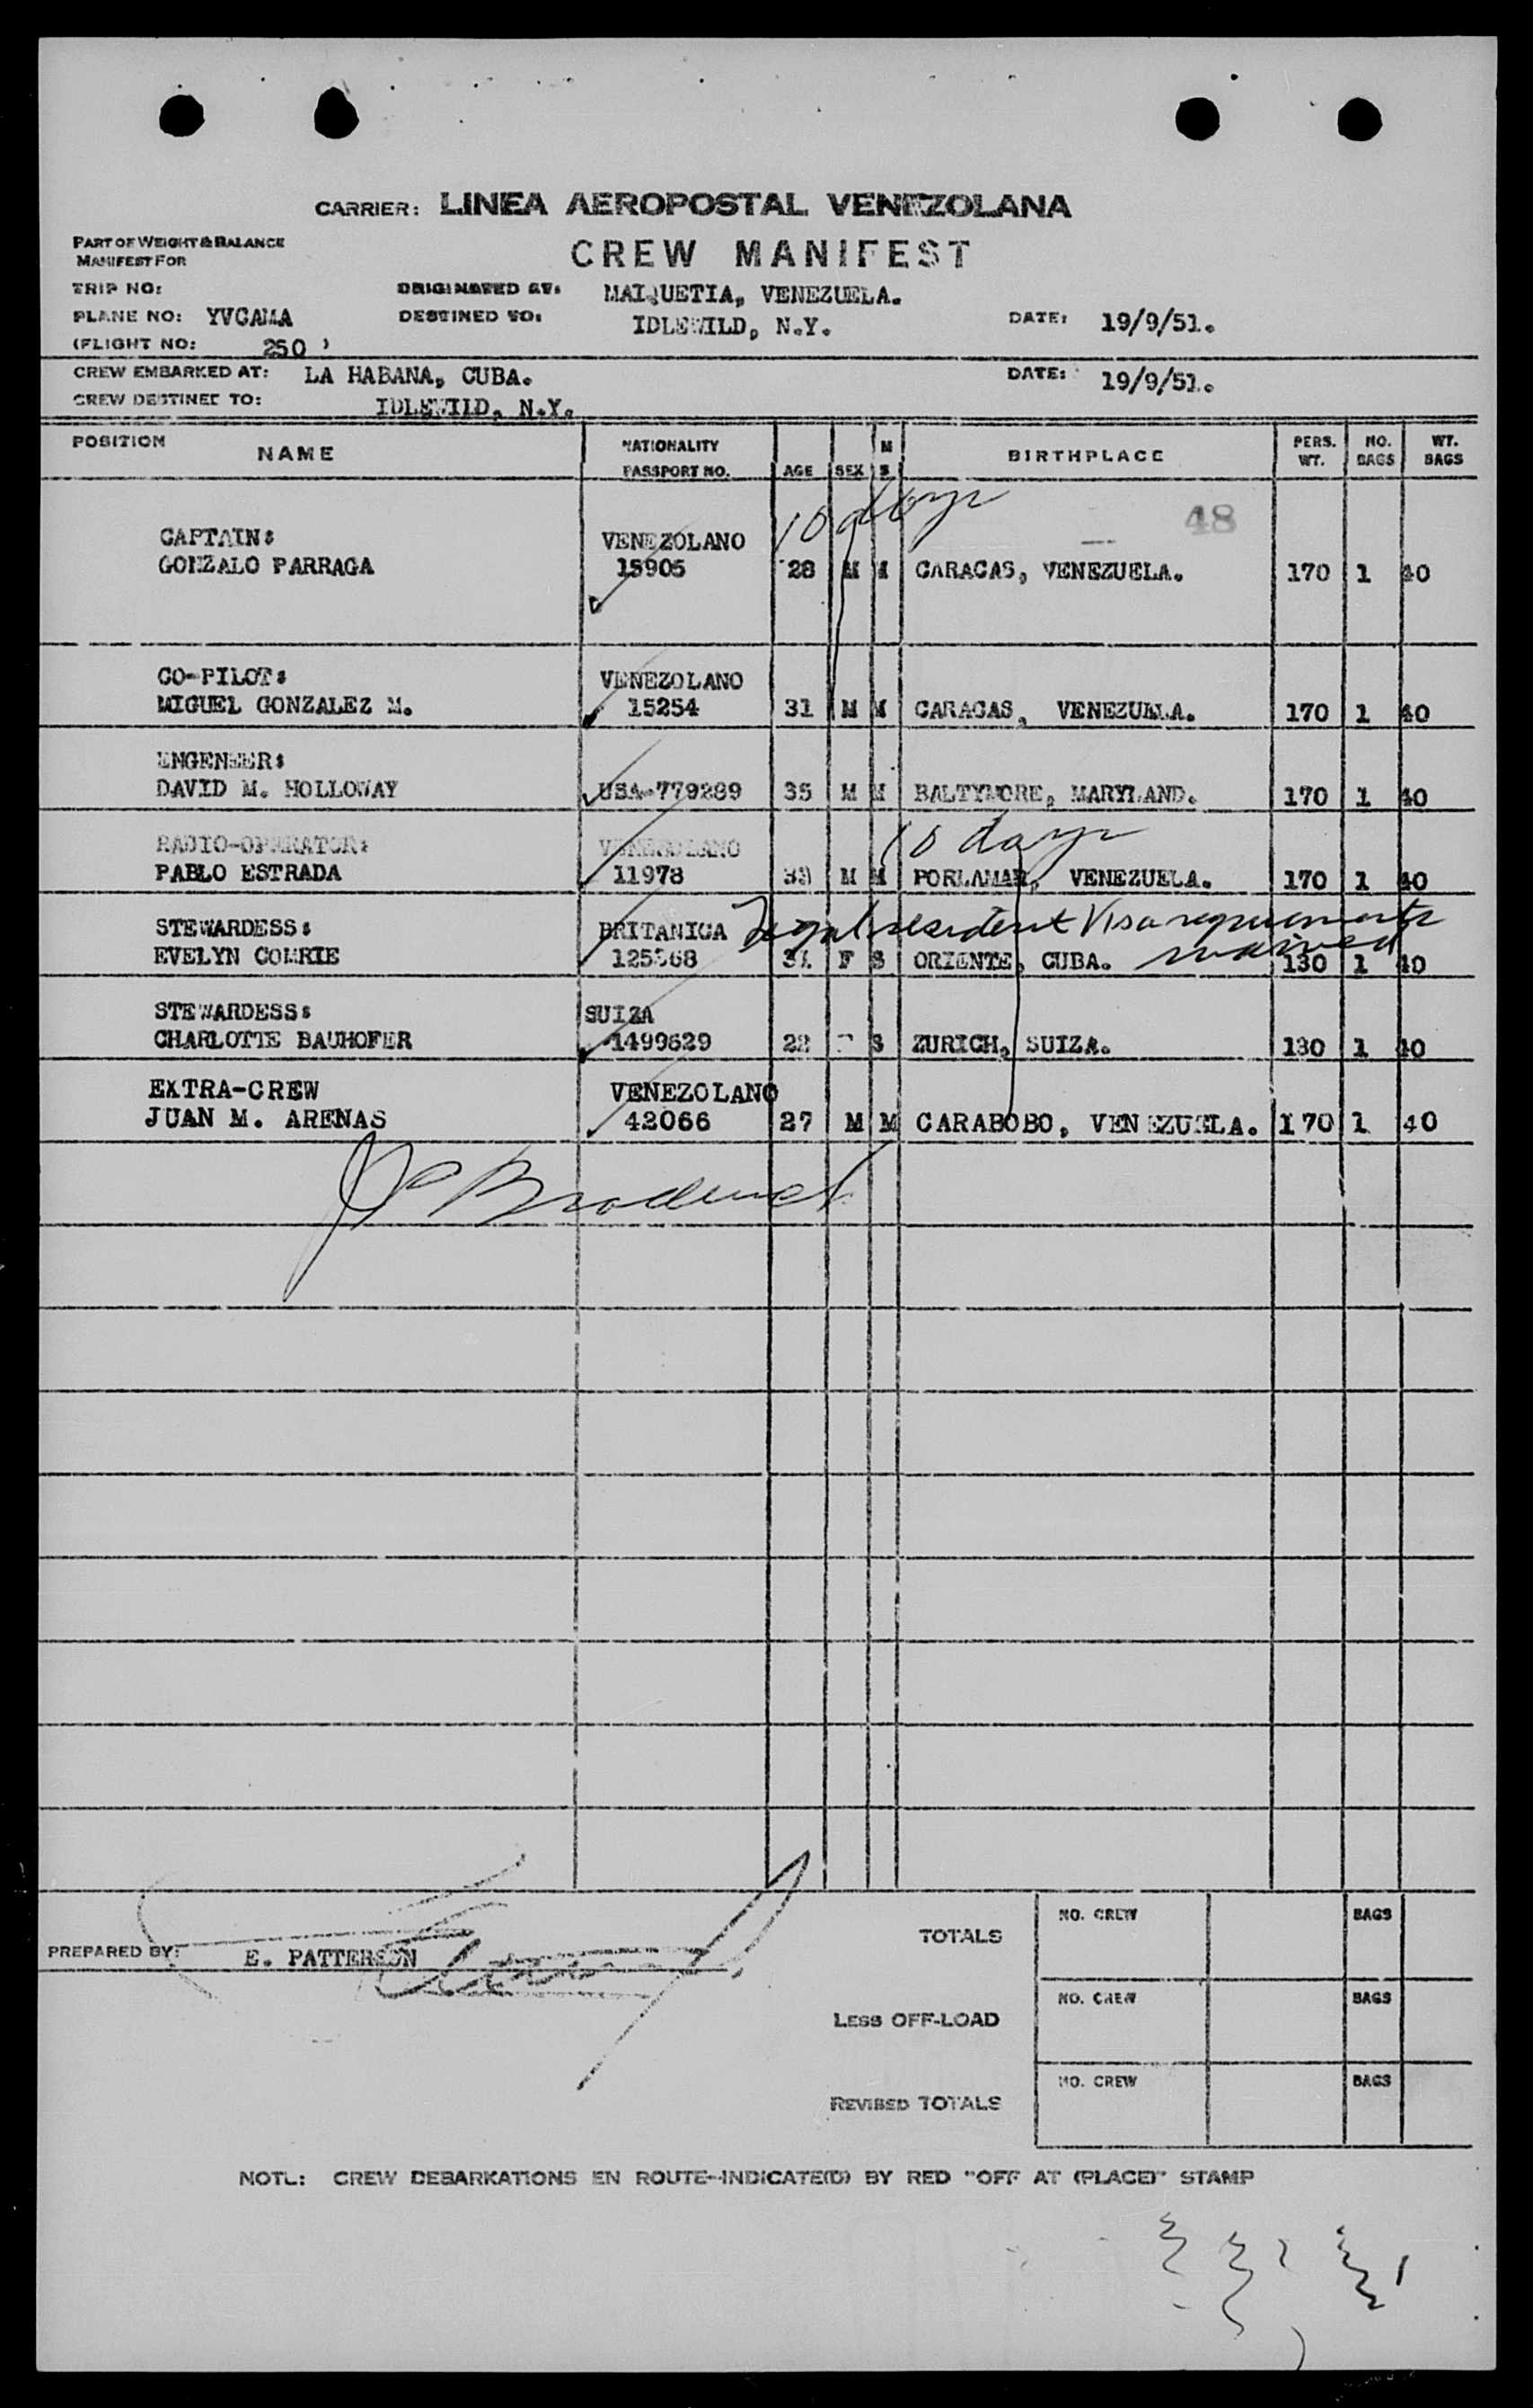 CARRIER: LINEA AEROPOSTAL VENEZOLANA
PART OF WEIGHT & BALANCE
MANIFEST FOR
CREW MANIFEST
TRIP NO: ORIGINATED AT: MAIQUETIA, VENEZUELA.
PLANE NO: YVCAMA DESTINED TO: IDLEWILD, N.Y. DATE: 19/9/51.
(FLIGHT NO: 250 )
CREW EMBARKED AT: LA HABANA, CUBA. DATE: 19/9/51.
CREW DESTINED TO: IDLEWILD, N.Y.
POSITION NAME NATIONALITY M BIRTHPLACE PERS. NO. WT.
PASSPORT NO. AGE SEX S WT. BAGS BAGS
10 days 48
CAPTAIN: VENEZOLANO
GONZALO PARRAGA 15905 28 M M CARACAS, VENEZUELA. 170 1 40
CO-PILOT: VENEZOLANO
MIGUEL GONZALEZ M. 15254 31 M M CARACAS, VENEZUELA. 170 1 40
ENGENEER:
DAVID M. HOLLOWAY USA-779289 35 M M BALTYMORE, MARYLAND. 170 1 40
10 days
RADIO-OPERATOR: VENEZOLANO
PABLO ESTRADA 11978 M M PORLAMAR, VENEZUELA. 170 1 40
STEWARDESS: BRITANICA Legal resident Visa requirements
waived
EVELYN COMRIE 31 F S ORIENTE, CUBA. 130 1 40
STEWARDESS: SUIZA
CHARLOTTE BAUHOFER 1499629 22 S ZURICH, SUIZA. 130 1 40
EXTRA-CREW VENEZOLANO
JUAN M. ARENAS 42066 27 M M CARABOBO, VENEZUELA. 170 1 40
PREPARED BY: E. PATTERSON
TOTALS NO. CREW BAGS
LESS OFF-LOAD NO. CREW BAGS
REVISED TOTALS NO. CREW BAGS
NOTE: CREW DEBARKATIONS EN ROUTE-INDICATE(D) BY RED "OFF AT (PLACE)" STAMP